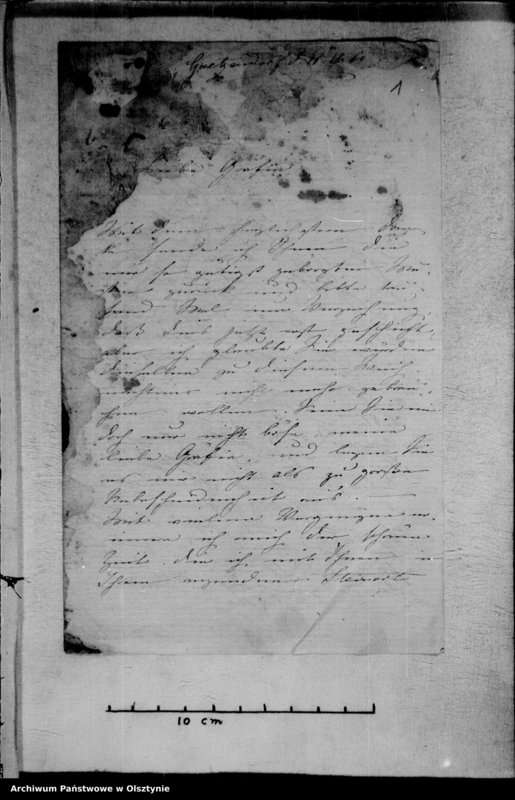 1
Liebe Gräfin
Mit dem herzlichsten Dan-
ke sende ich Ihnen die
mir so gütigst geborgten
zurück und bitte tau-
send Mal um Verzeihung,
daß dies jetzt erst geschieht
aber ich glaubte Sie würden
dieselben zu diesem
nicht mehr gebrau-
chen wollen. Seien Sie mir
doch nur nicht böse, meine
liebe Gräfin, und legen Sie
es mir nicht als zu große
Unbescheidenheit aus.
Mit vielem Vergnügen er-
innere ich mich der schönen
Zeit, die ich mit Ihnen in
Ihrem reizenden Steinort
10 cm
Archiwum Państwowe w Olsztynie